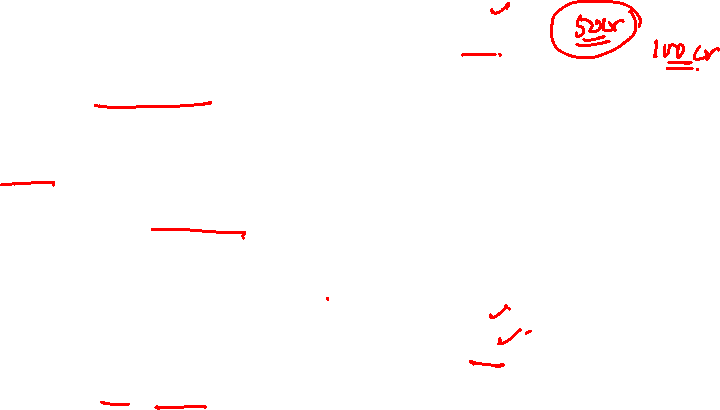 50cr
100 cr